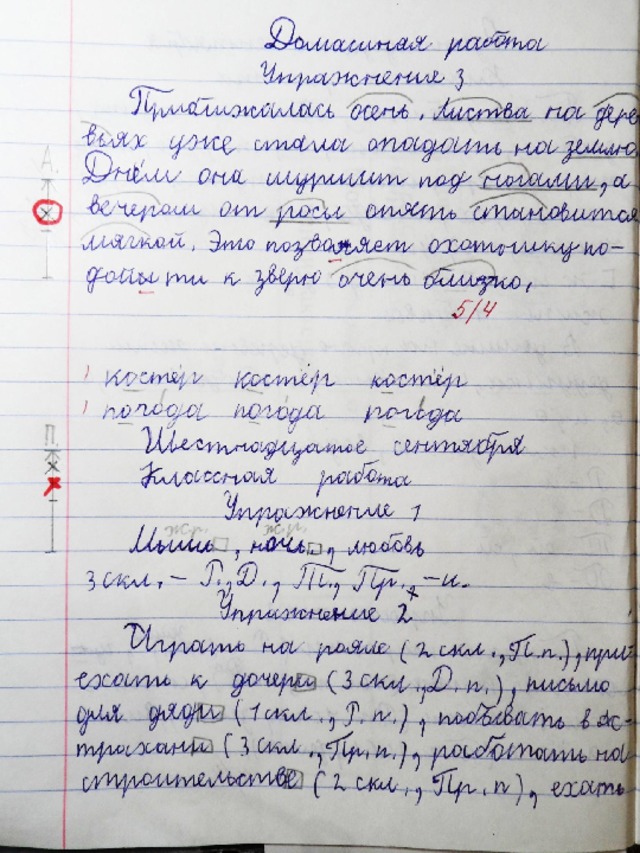 Домашняя работа
Упражнения 3
Приближалась осень. Листва на дере
вьях уже стала опадать на землю.
Днём она шуршит под ногами, а
вечером от росы опять становится
мягкой. Это позволяет охотнику по-
дойы ти к зверю очень близко.
5/4
костёр костёр костёр
погода погода погода
Шестнадцатое сентября
Классная работа
Упражнение 1
ж.р. ж.р.
Мышь, ночь, любовь
3 скл. – Р., Д., Т., Пр., -и.
Упражнение 2
Играть на рояле (2 скл., П.п.), при
ехать к дочери (3 скл., Д.п.), письмо
для дяди (1 скл., Р.п.), побывать в Ас-
трахани (3 скл., Пр.п.), работать на
строительстве (2 скл., Пр.п), ехать
А.
П.